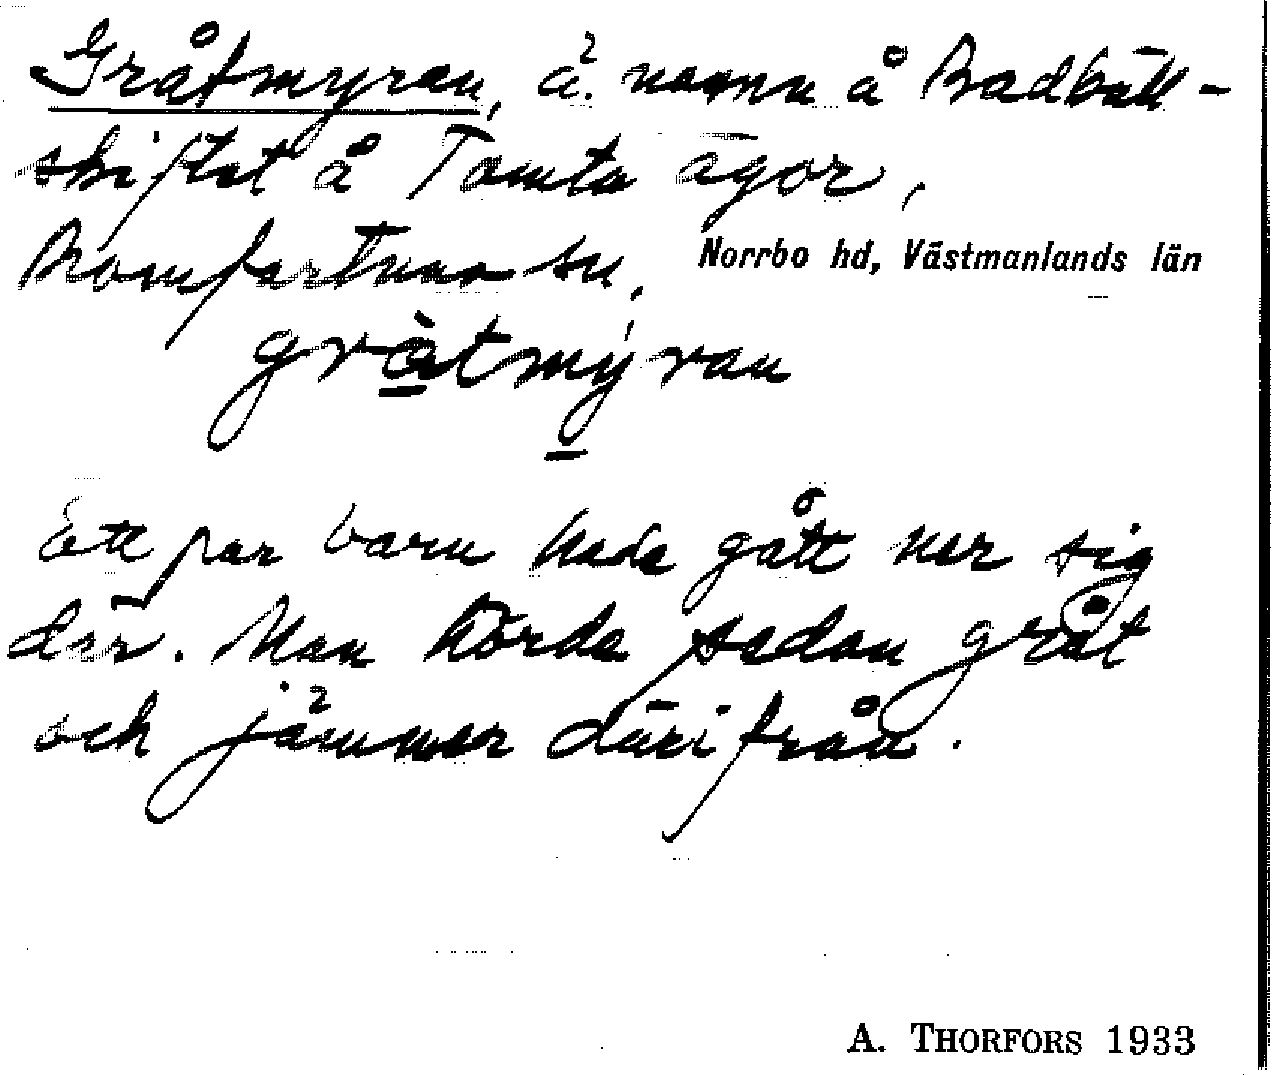 Gråtmyren, ä. namn å Badbäll-
skiftet å Tomta ägor,
Romfartuna sn, Norrbo hd, Västmanlands län
gràtmýran
Ett par barn hade gått ner sig
där. Man hörde sedan gråt
och jämmer därifrån.
A. THORFORS 1933